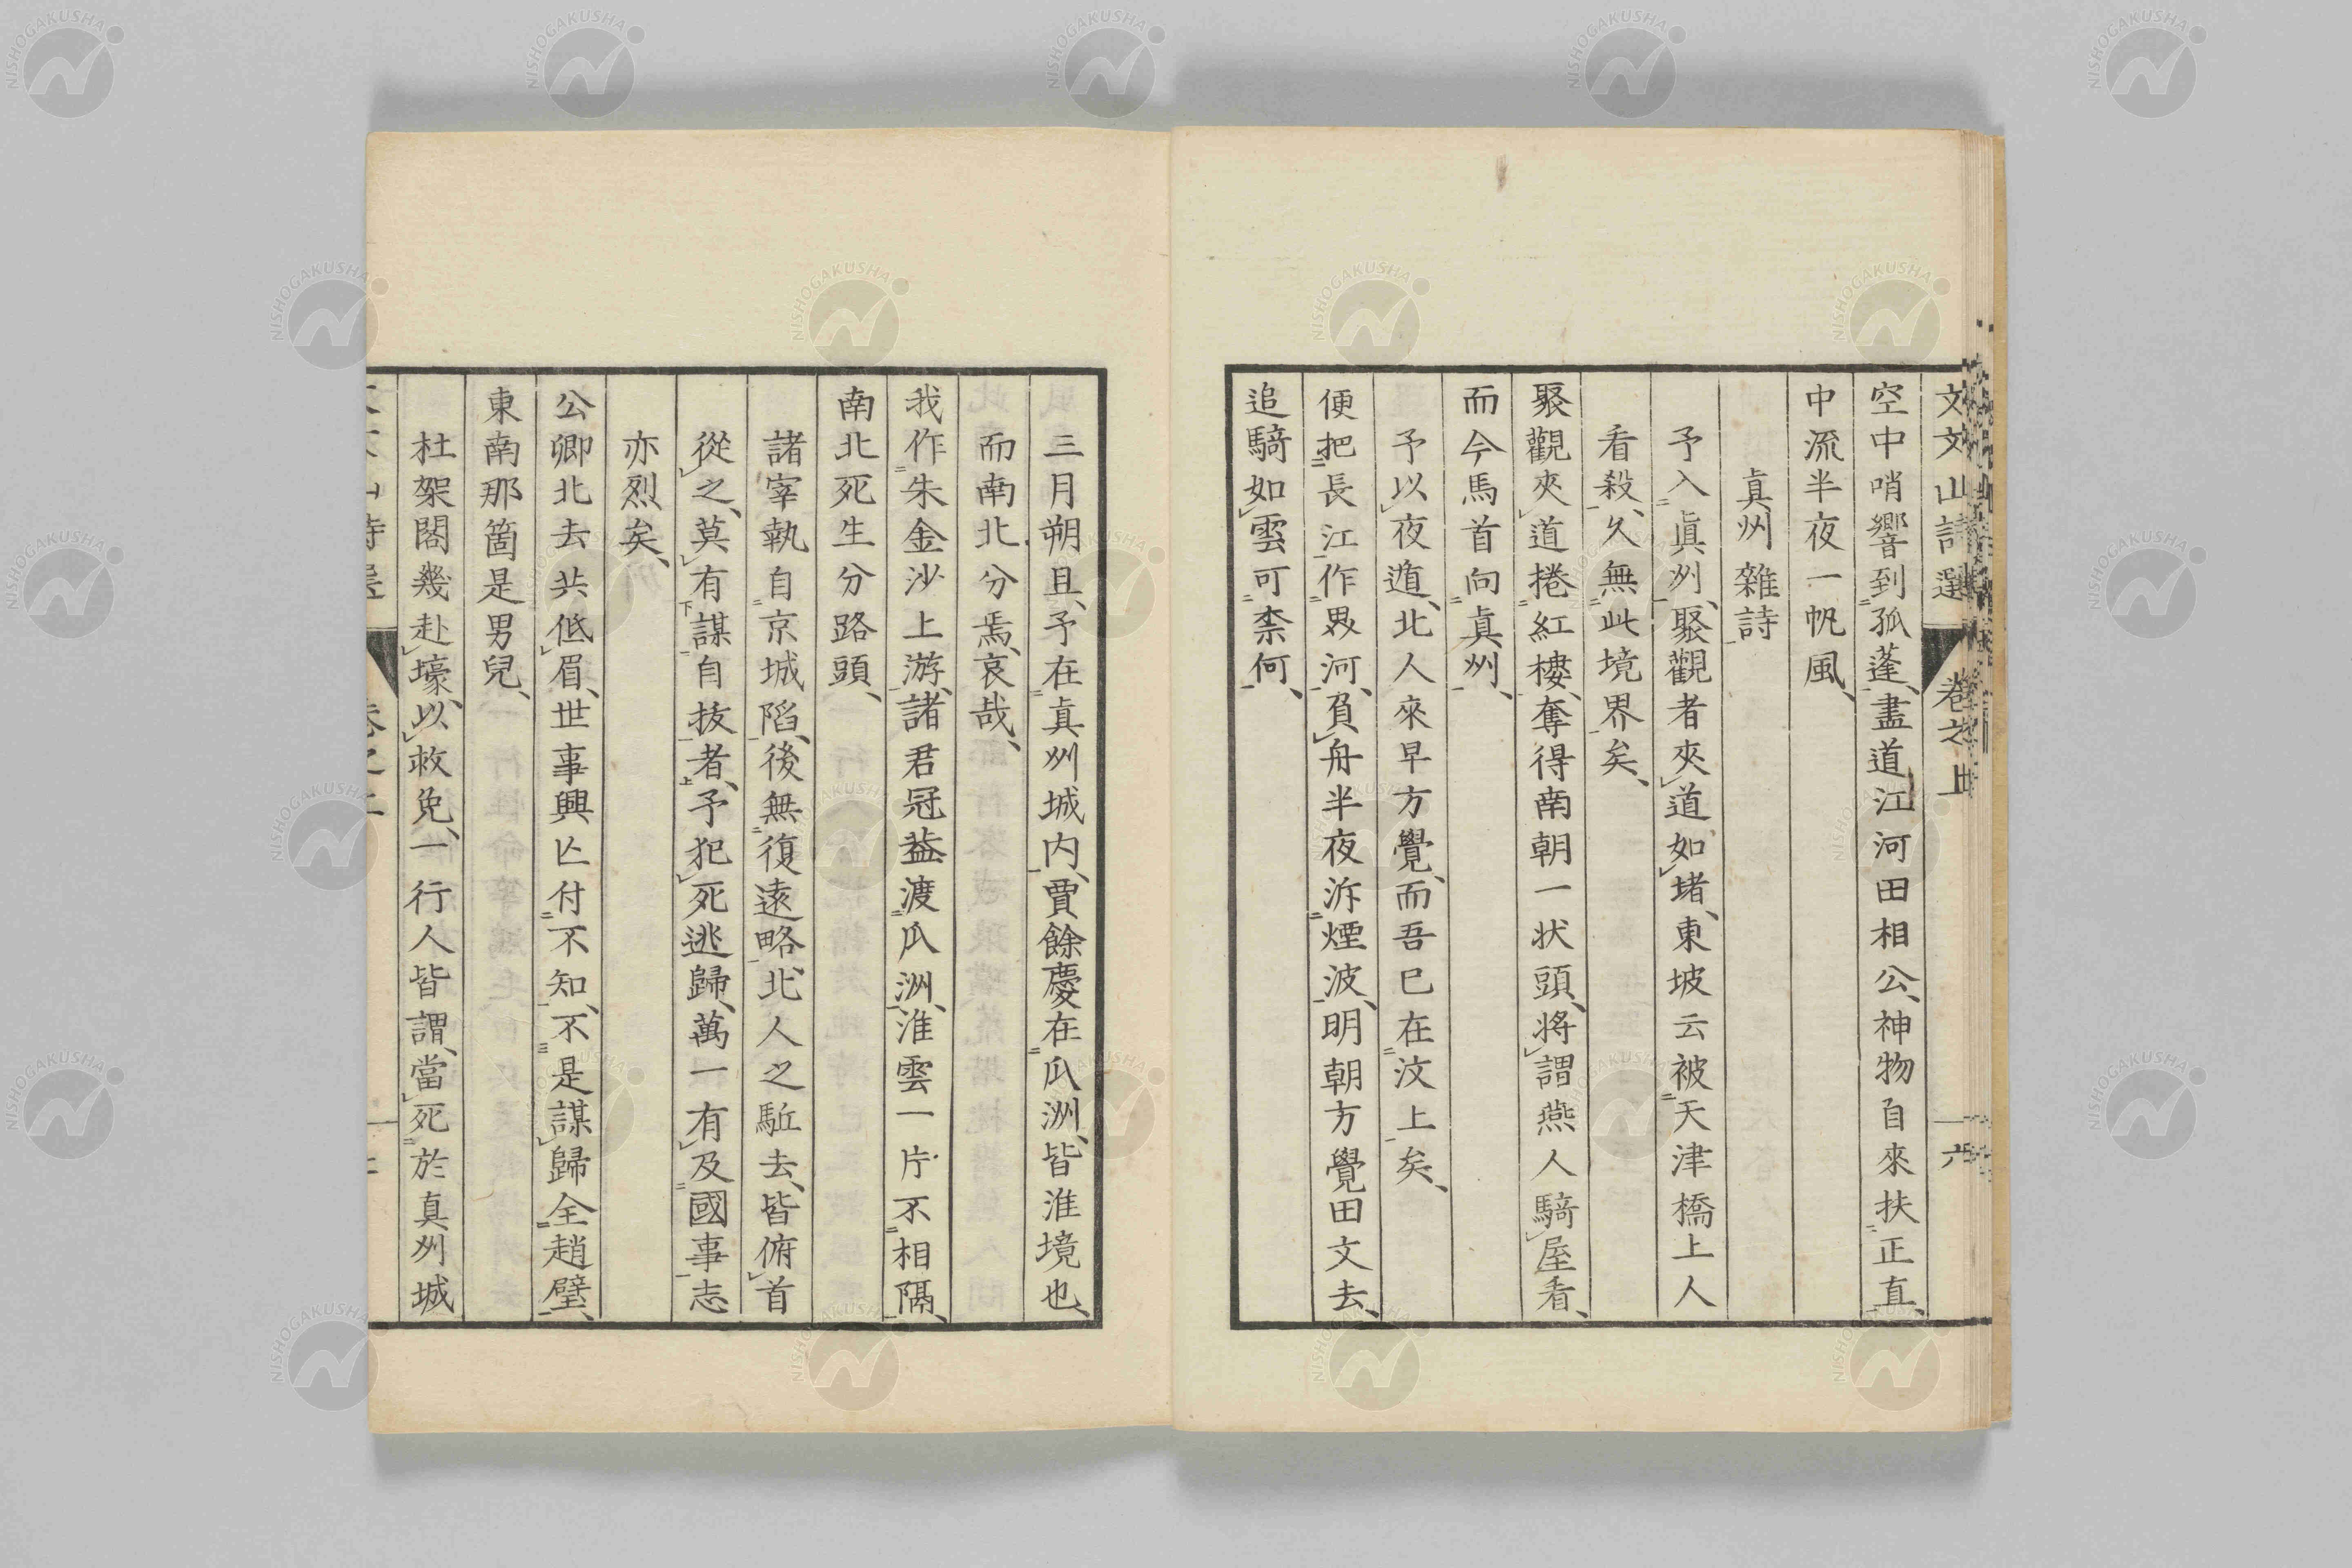 文文山詩選 卷之上
空中哨響到孤蓬、盡道江河田相公、神物自來扶正直、
中流半夜一帆風、
眞州雜詩
予入眞州、聚觀者夾道如堵、東坡云被天津橋上人
看殺、久無此境界矣、
聚觀夾道捲紅樓、奪得南朝一状頭、将謂燕人騎屋看、
而今馬首向眞州、
予以夜遁、北人來早方覺、而吾已在汶上矣、
便把長江作界河、負舟半夜泝煙波、明朝方覺田文去、
追騎如雲可柰何、
三月朔旦、予在眞州城内、賈餘慶在瓜洲、皆淮境也、
而南北分焉、哀哉、
我作朱金沙上游、諸君冠葢渡瓜洲、淮雲一片不相隔、
南北死生分路頭、
諸宰執自京城陷、後無復遠略、北人之駈去、皆俯首
從之、莫有謀自拔者、予犯死逃歸、萬一有及國事志
亦烈矣、
公卿北去共低眉、世事興亾付不知、不是謀歸全趙璧、
東南那箇是男兒、
杜架閣幾赴壕、以救免、一行人皆謂、當死於真州城
NISHOGAKUSHA